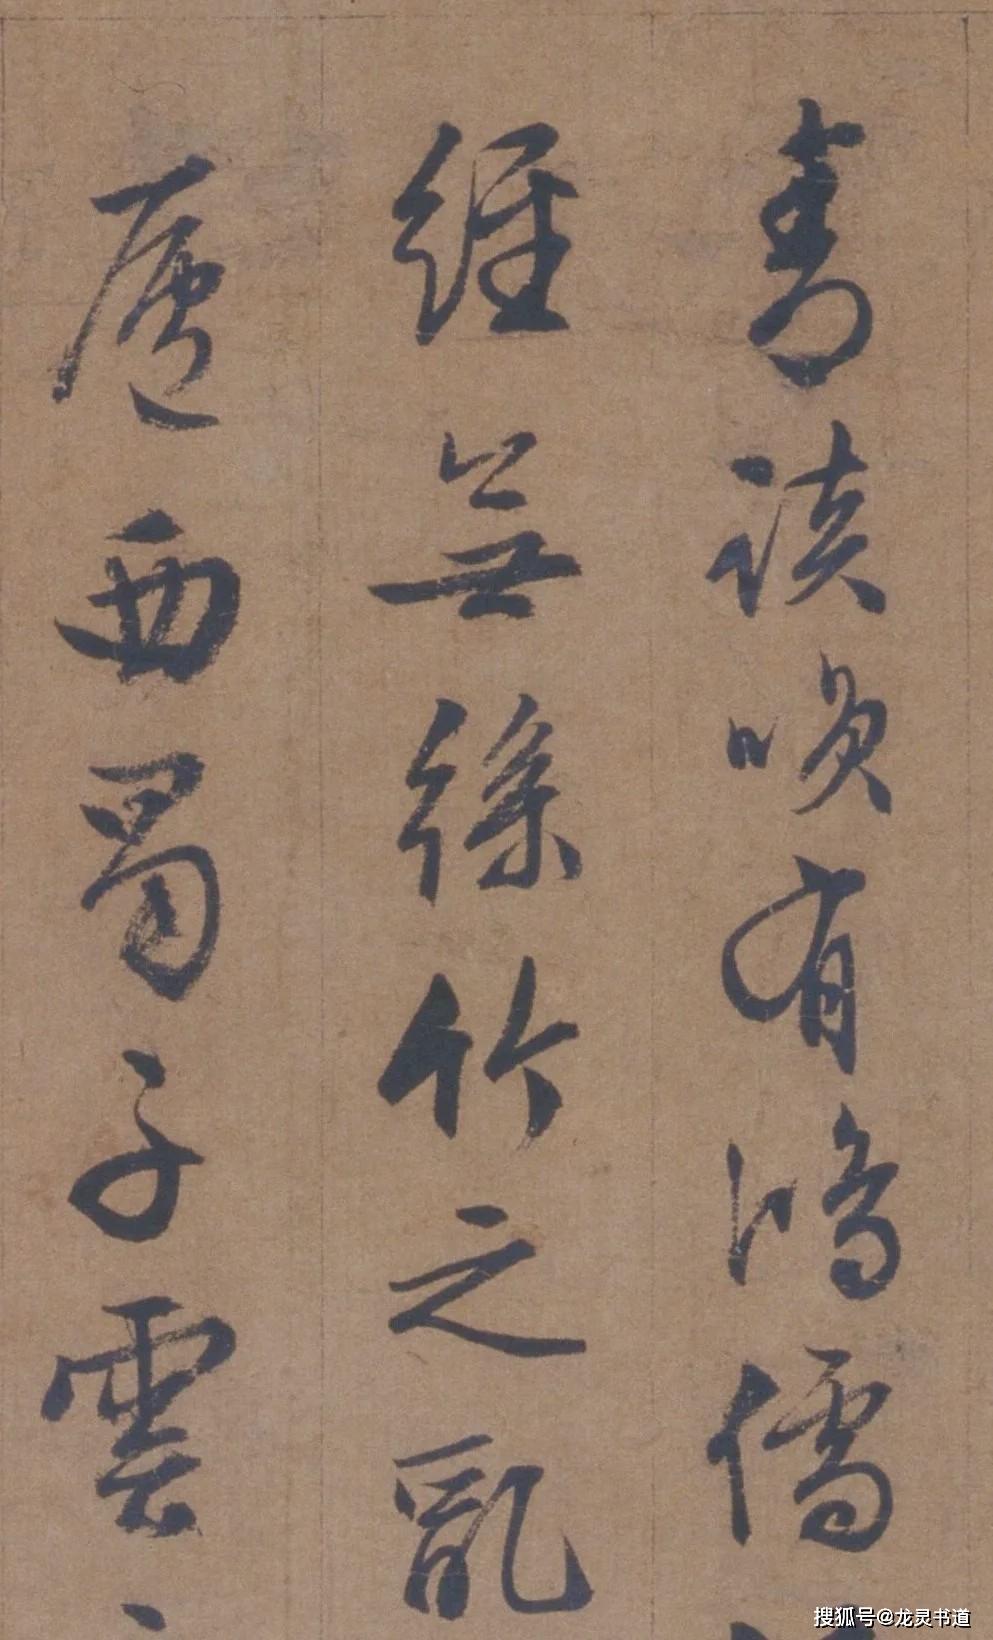 青談咲有鴻儒
經無絲竹之亂
廬西蜀子雲
搜狐号@龙灵书道